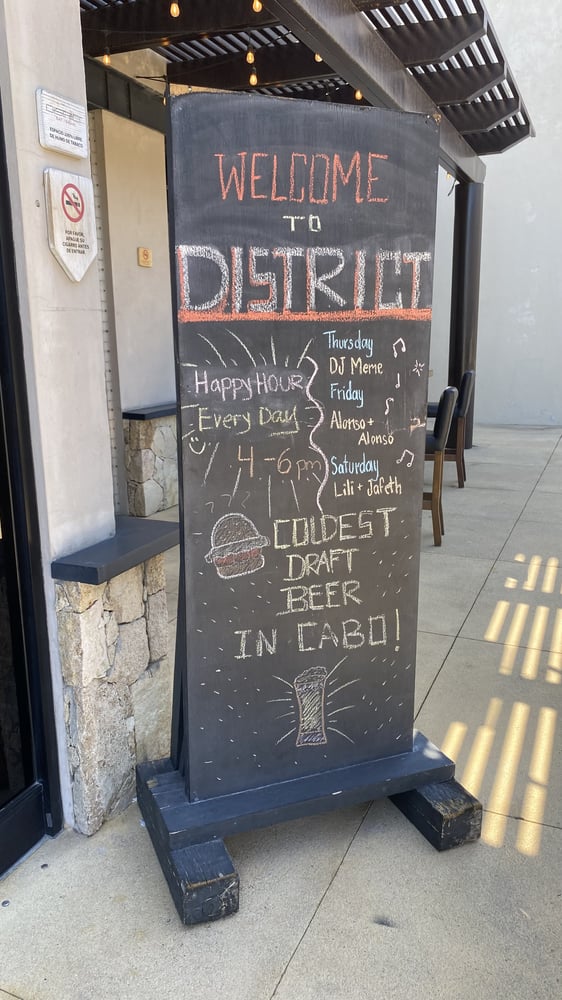 ESPACIO 100% LIBRE
DE HUMO DE TABACO
POR FAVOR,
APAGUE SU
CIGARRO ANTES
DE ENTRAR
WELCOME
TO
DISTRICT
Happy HOUR
Every Day
4-6pm
Thursday
DJ Meme
Friday
Alonso +
Alonso
Saturday
Lili + Jafeth
COLDEST
DRAFT
BEER
IN CABO!